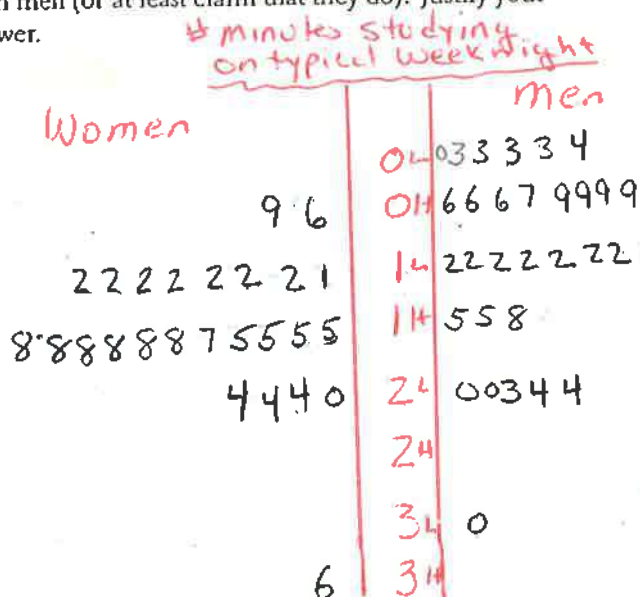 men (or at least claim that they do). Justify your
wer.
# minutes studying
on typical weeknight
Women Men
0L 03 3 3 3 4
9 6 0H 6 6 6 7 9999
2 2 2 2 2 2 2 1 1L 22 2 2 2 22
8 8 8 8 8 8 7 5 5 5 5 1H 5 5 8
4 4 4 0 2L 00344
2H
3L 0
6 3H